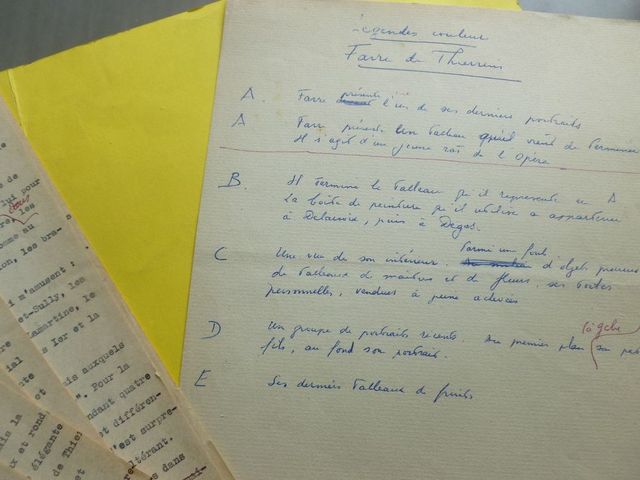 Légendes couleur
Favre de Thierrens
A. Favre présente l'un de ses derniers portraits
A Favre présente un tableau qu'il vient de terminer
Il s'agit d'un jeune rat de l'Opéra
B. Il termine le tableau qu'il représente en A
La boîte de peinture qu'il utilise a appartenu
à Delacroix, puis à Degas.
C Une vue de son intérieur. Parmi un fouli d'objets precieux
de tableaux de maîtres et de fleurs, ses toiles
personnelles, vendues à peine achevées
D Un groupe de portraits recents. Au premier plan son pet
à gche
fils, au fond son portrait.
E Ses derniers tableaux de fruits
de
lui pour
les
comme au
ion, les bra-
i m'amusent :
et-Sully, les
Lamartine, le
s Ier et la
uis auxquels
". Pour la
ndant quatre
et différen-
c'est surpre-
ltérant.
s dans
ial
nte
et
ais la
x et rond
élégante
de Thie
et